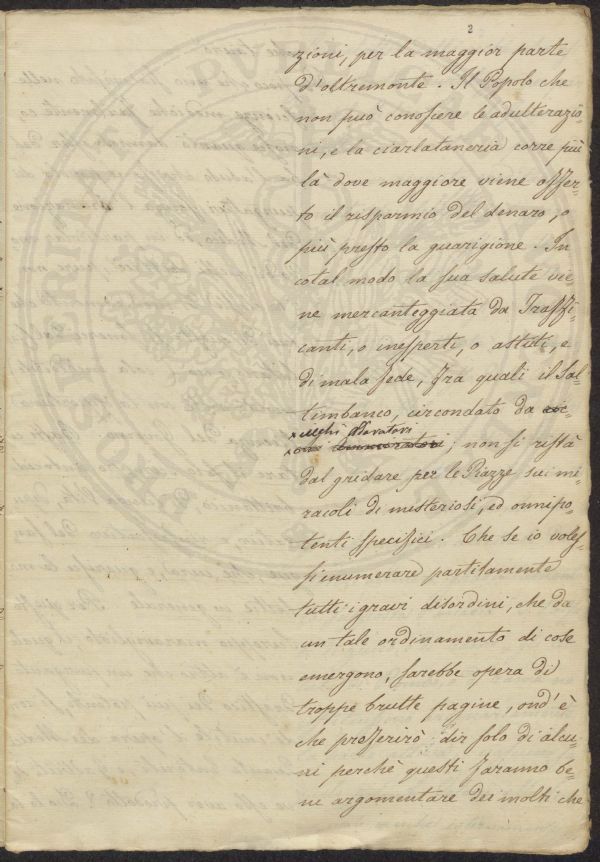 2
zioni, per la maggior parte
d'oltremonte. Il Popolo che
non può conoscere le adulterazio-
ni, e la ciarlataneria corre più
là dove maggiore viene offer-
to il risparmio del denaro, o
più presto la guarigione. In
cotal modo la sua salute vie-
ne mercanteggiata da Traffi-
canti, o inesperti, o astuti, e
di mala fede, fra quali il Sal-
timbanco, circondato da
adoratori
ammiratori; non si ristà
dal gridare per le Piazze sui mi-
racoli di misteriosi, ed omnipo-
tenti specifici. Che se io voles-
si enumerare partitamente
tutti i gravi disordini, che da
un tale ordinamento di cose
emergono, sarebbe opera di
troppe brutte pagine, ond'è
che profferirò dir solo di alcu-
ni perchè questi faranno be-
ne argomentare dei molti che